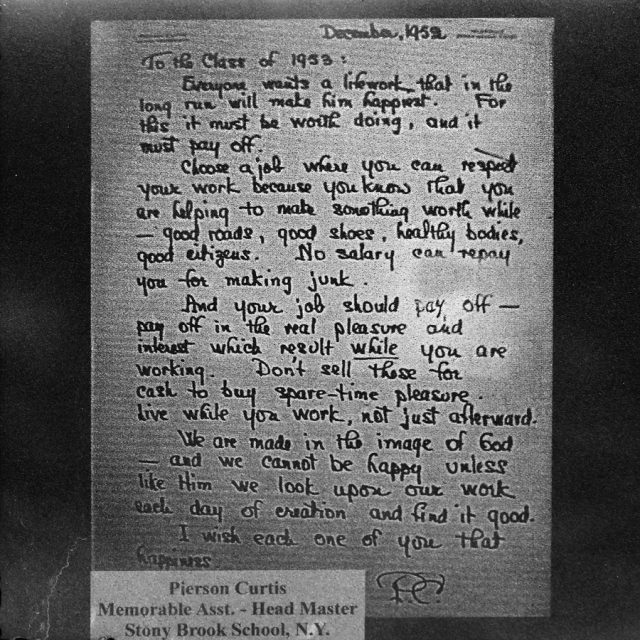 December, 1952
To the Class of 1953:
Everyone wants a lifework that in the
long run will make him happiest. For
this it must be worth doing, and it
must pay off.
Choose a job where you can respect
your work because you know that you
are helping to make something worth while
— good roads, good shoes, healthy bodies,
good citizens. No salary can repay
you for making junk.
And your job should pay off —
pay off in the real pleasure and
interest which result while you are
working. Don't sell these for
cash to buy spare-time pleasure.
Live while you work, not just afterward.
We are made in the image of God
— and we cannot be happy unless
like Him we look upon our work
each day of creation and find it good.
I wish each one of you that
happiness.
P.C.
Pierson Curtis
Memorable Asst. - Head Master
Stony Brook School, N.Y.